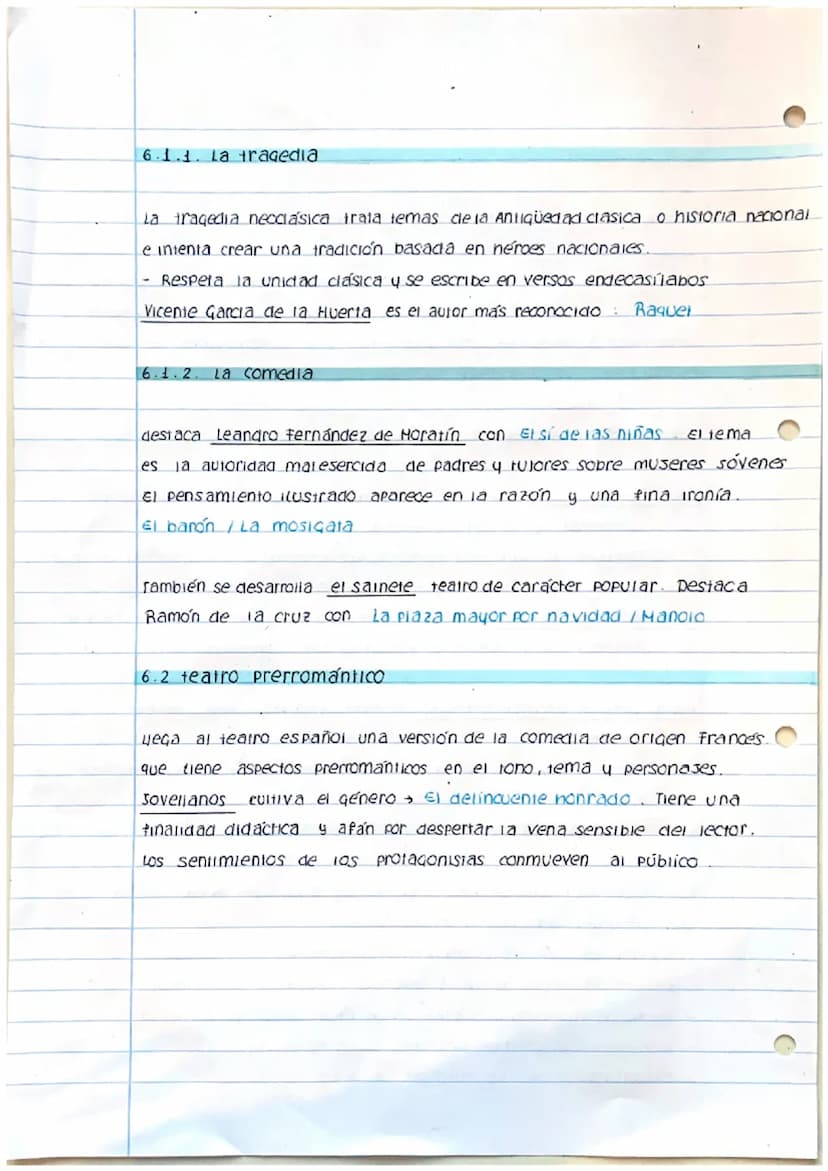 6.1.1. La tragedia
La tragedia neoclásica trata temas de la Antigüedad clásica o historia nacional
e intenta crear una tradición basada en héroes nacionales.
- Respeta la unidad clásica y se escribe en versos endecasílabos
Vicente García de la Huerta es el autor más reconocido : Raquel
6.1.2. La comedia
destaca Leandro Fernández de Moratín con El sí de las niñas. El tema
es la autoridad mal esercida de padres y tutores sobre mujeres jóvenes
El pensamiento ilustrado aparece en la razón y una fina ironía.
El barón / La mosigata
También se desarrolla el sainete teatro de carácter popular. Destaca
Ramón de la cruz con La plaza mayor por navidad / Manolo
6.2 teatro prerromántico
llega al teatro español una versión de la comedia de origen Francés.
que tiene aspectos prerrománticos en el tono, tema y personajes.
Jovellanos cultiva el género → El delincuente honrado. Tiene una
finalidad didáctica y afán por despertar la vena sensible del lector.
Los sentimientos de los protagonistas conmueven al público.